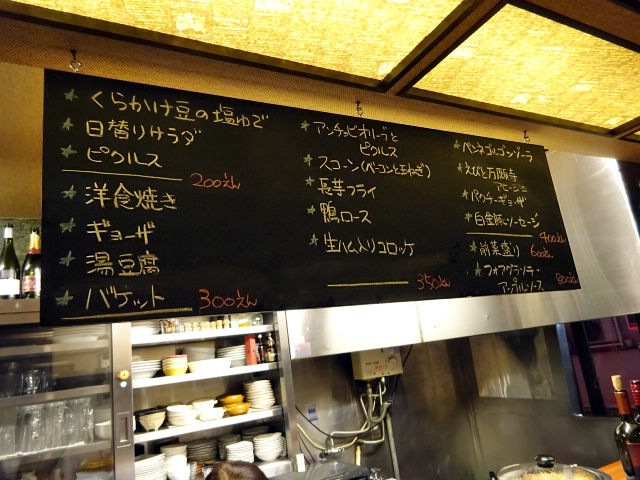 ★ くらかけ豆の塩ゆで
★ 日替りサラダ
★ ピクルス
200えん
★ 洋食焼き
★ ギョーザ
★ 湯豆腐
★ バケット
300えん
★ アンチョビオリーブと
ピクルス
★ スコーン(ベーコンと玉ねぎ)
★ 長芋フライ
★ 鴨ロース
★ 生ハム入りコロッケ
350えん
★ ペンネゴルゴンゾーラ
★ えびと万願寺
アヒージョ
★ パクチーギョーザ
★ 白金豚ソーセージ
400えん
★ 前菜盛り 600えん
★ フォアグラソテー
アップルソース 800えん